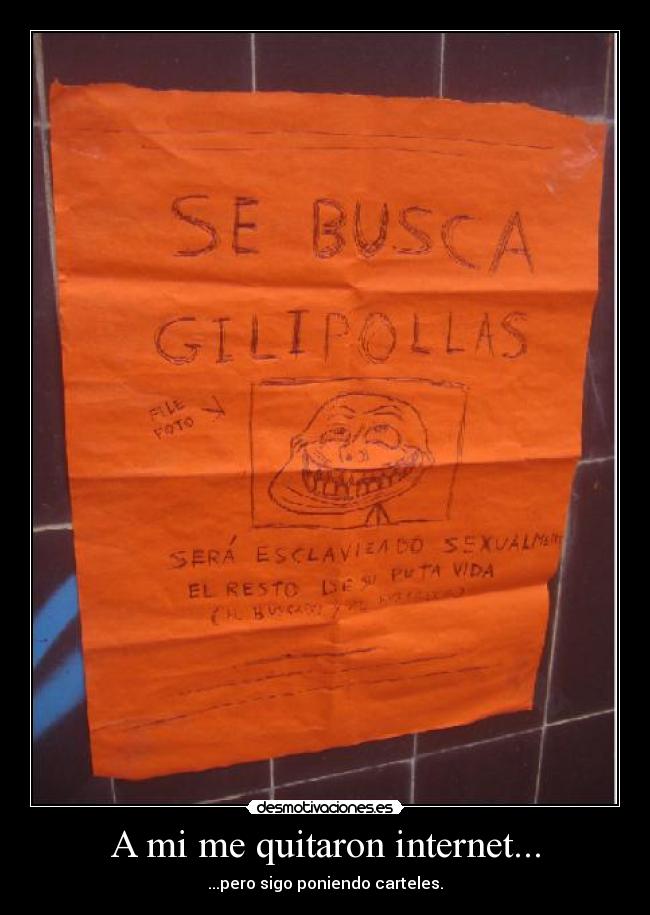 SE BUSCA
GILIPOLLAS
FILE
FOTO
SERÁ ESCLAVIZADO SEXUALMENTE
EL RESTO DE SU PUTA VIDA
desmotivaciones.es
A mi me quitaron internet...
...pero sigo poniendo carteles.